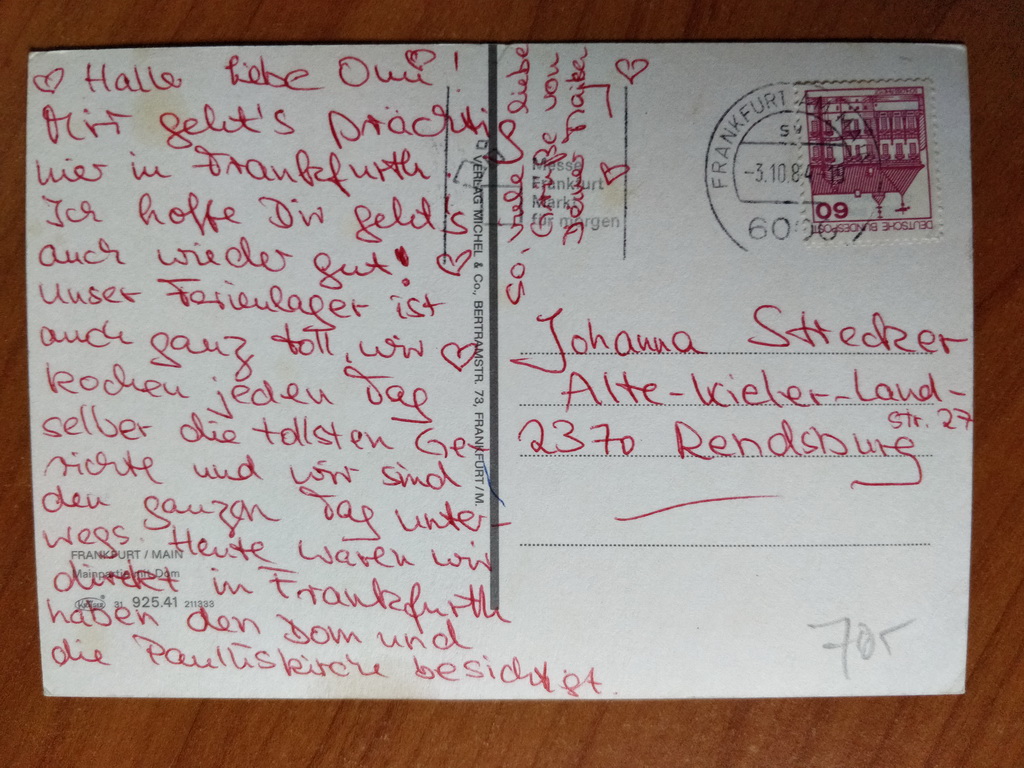 Hallo liebe Omi!
Mir geht's prächti
hier in Frankfurth
Ich hoffe Dir geht's
auch wieder gut!
Unser Ferienlager ist
auch ganz toll, wir
kochen jeden Tag
selber die tollsten Ge-
richte und wir sind
den ganzen Tag unter-
wegs. Heute waren wir
direkt in Frankfurth
haben den Dom und
die Paulluskirche besichtigt.
So, viele liebe
Grüße von
Deiner Maike
FRANKFURT / MAIN
Mainpartie mit Dom
Krüger 31 925.41 211333
VERLAG MICHEL & Co., BERTRAMSTR. 73, FRANKFURT/M.
Messe
Frankfurt
Markt
für morgen
FRANKFURT
-3.10.84-19
DEUTSCHE BUNDESPOST
60
Johanna Strecker
Alte-Kieler-Land-
str. 27
2370 Rendsburg